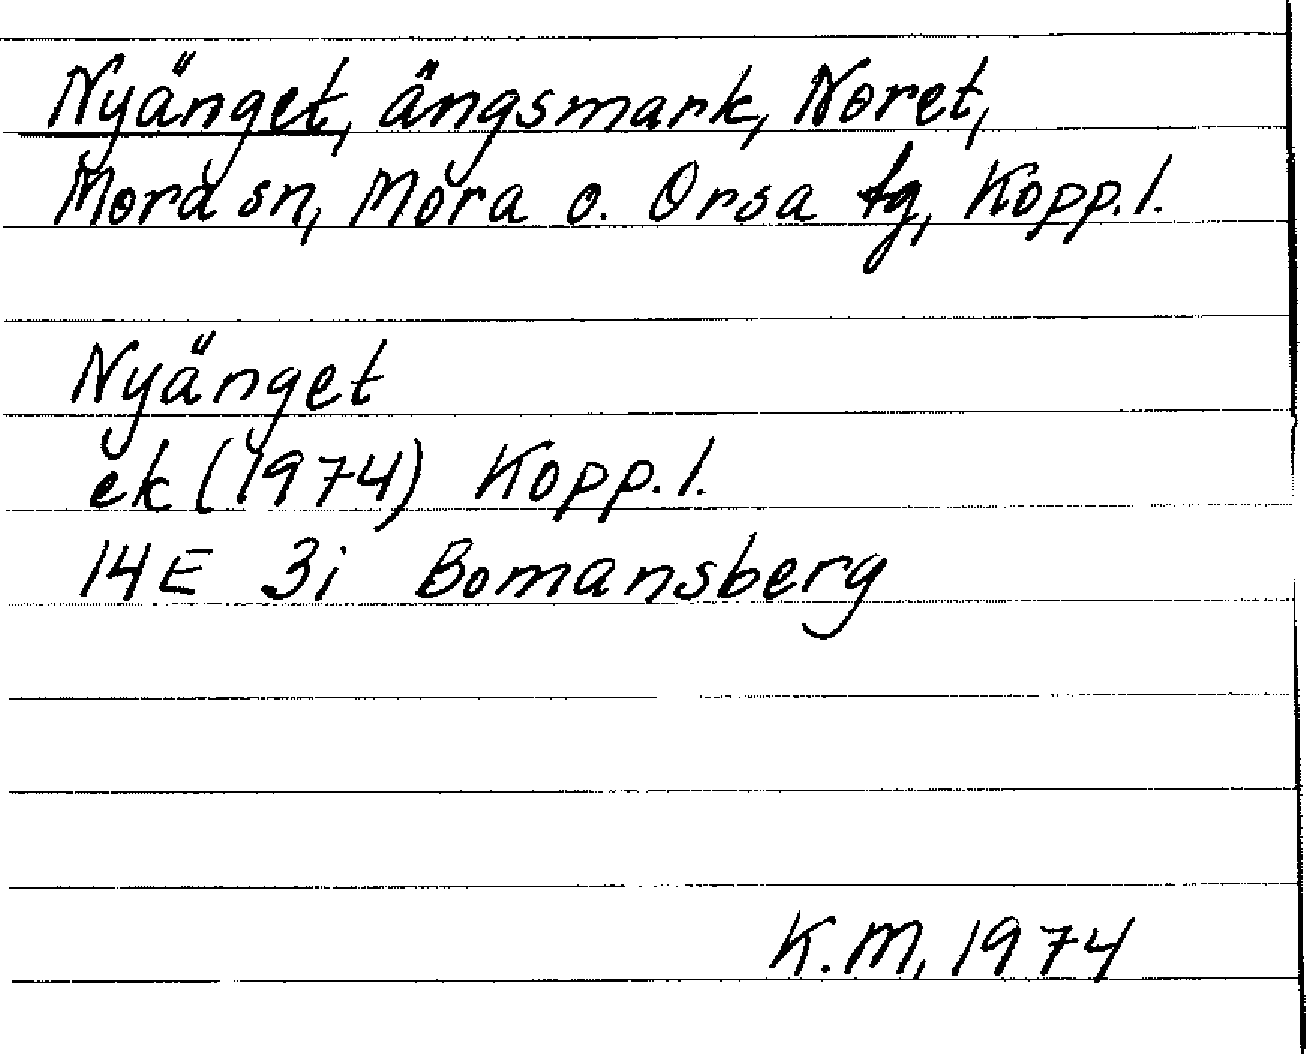 Nyänget, ängsmark, Noret,
Mora sn, Mora o. Orsa tg, Kopp. l.
Nyänget
ek (1974) Kopp. l.
14E 3i Bomansberg
K.M, 1974